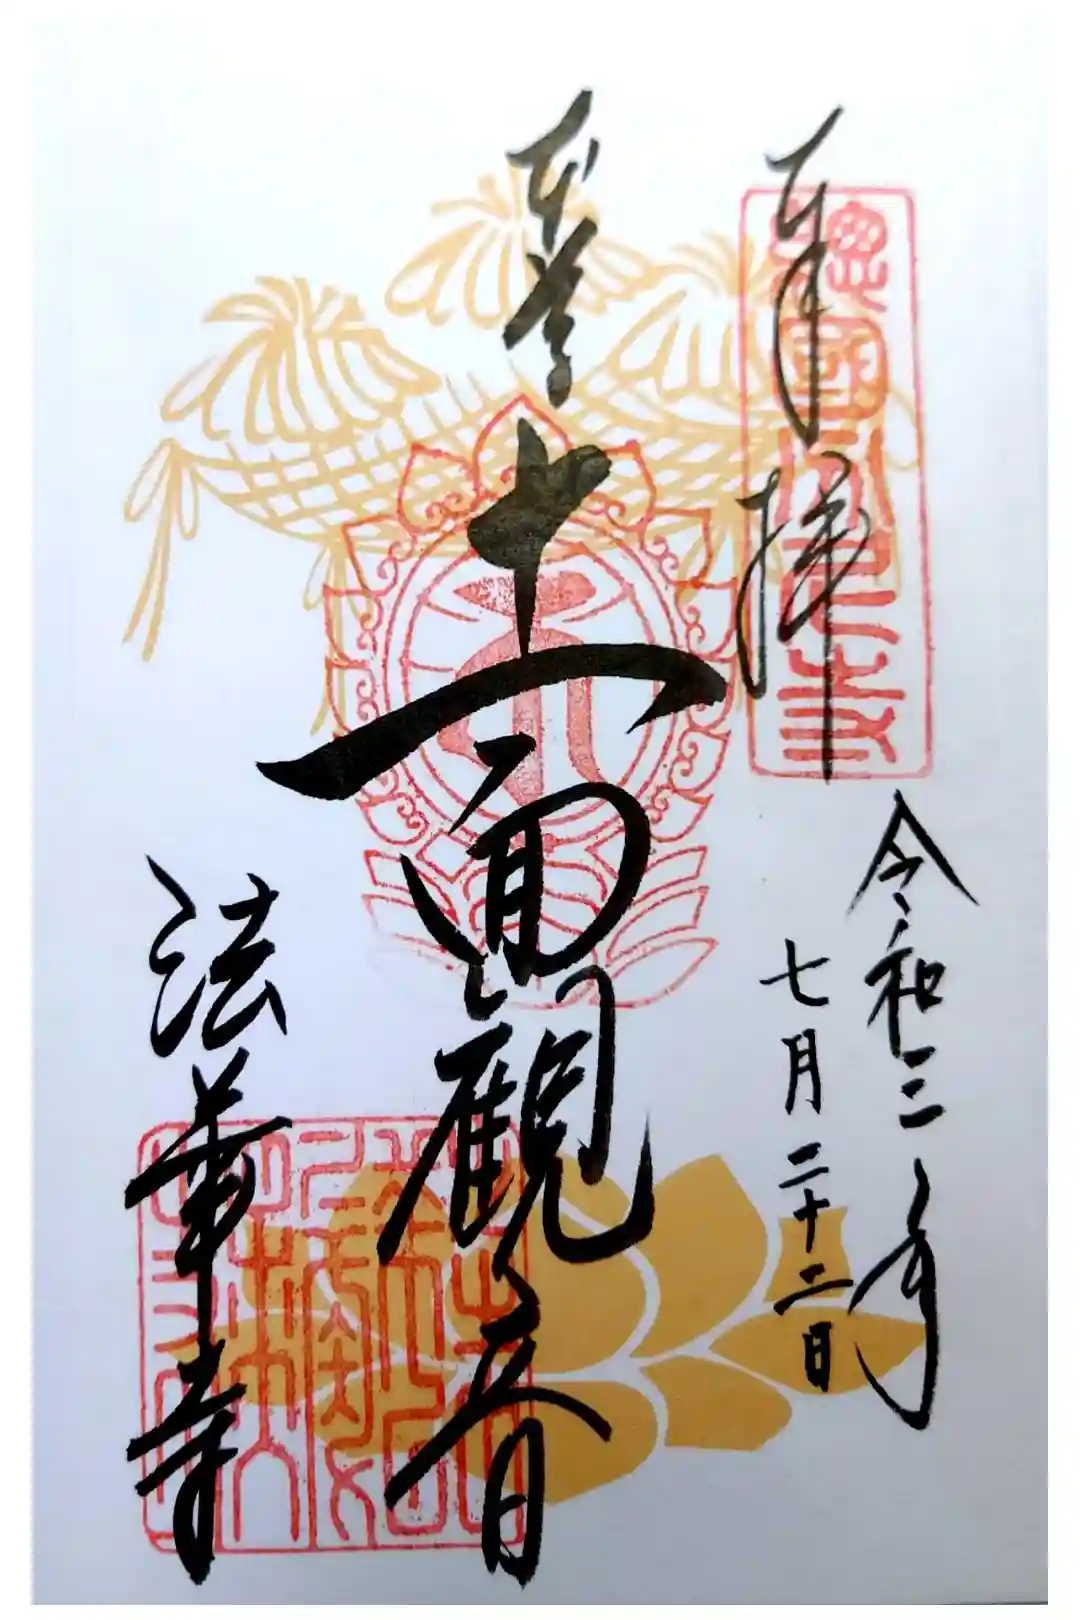 奉拝
令和三年
七月二十二日
本尊
十一面觀音
法華寺